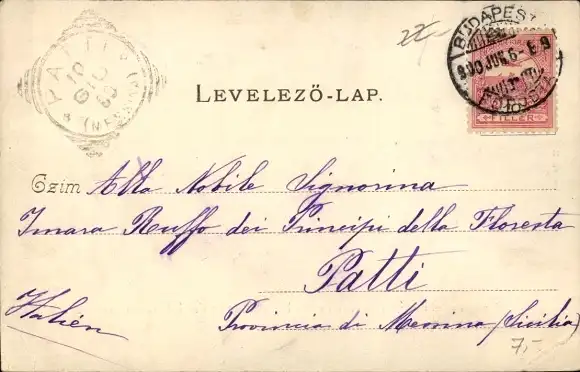 BUDAPEST
900 JUN 6
FILLER
PATTI
10 GIU 00
(MESSINA)
LEVELEZŐ-LAP.
Czim Alla Nobile Signorina
Imara Ruffo dei Principi della Floresta
Patti
Italién
Provincia di Messina (Sicilia)
7,-